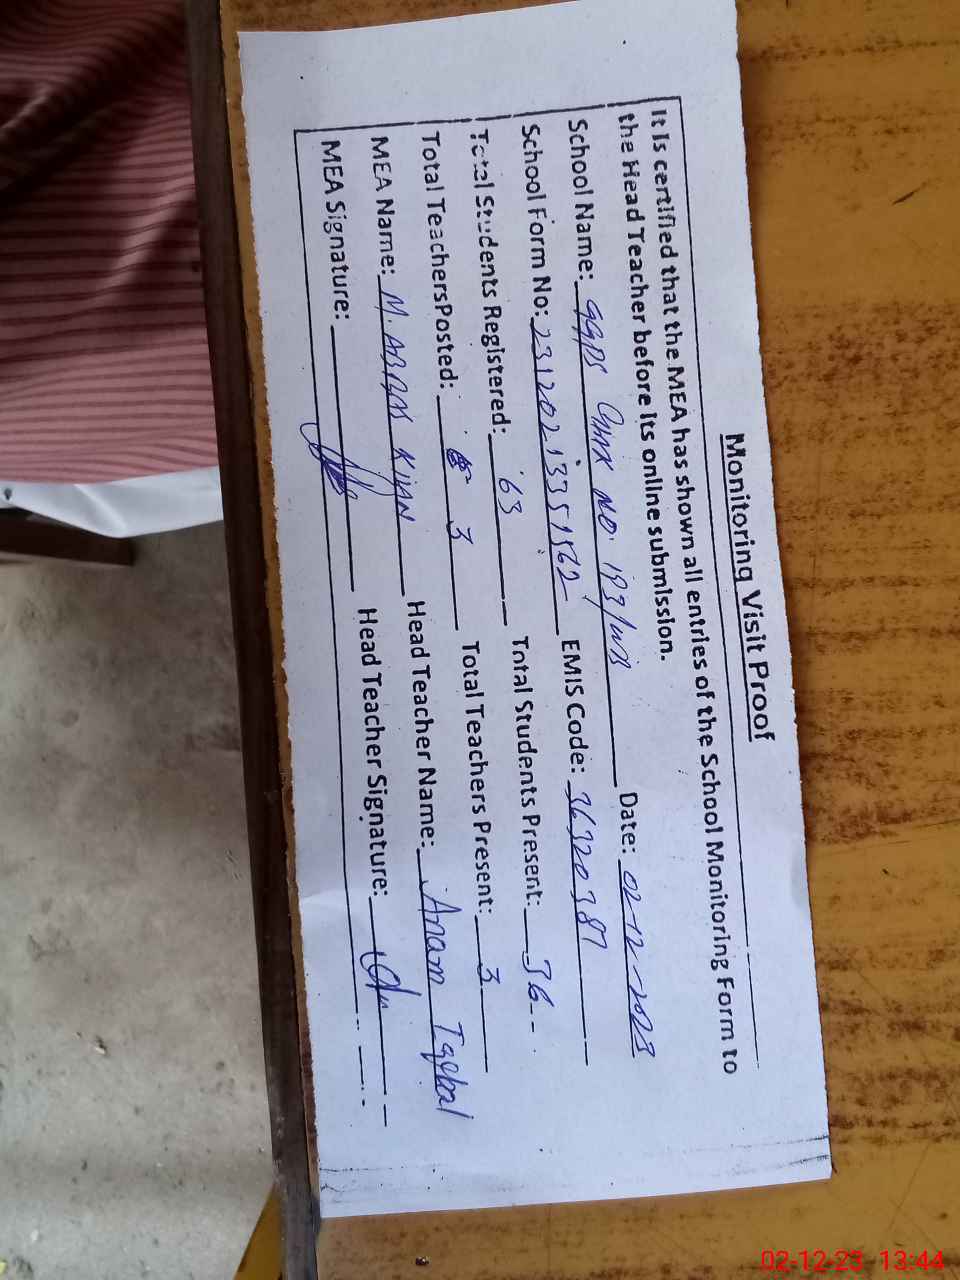 Monitoring Visit Proof
It is certified that the MEA has shown all entries of the School Monitoring Form to
the Head Teacher before its online submission.
School Name: GGPS Chak NO. 193/WB Date: 02-12-2023
School Form No: 23120213351562 EMIS Code: 36320387
Total Students Registered: 63 Total Students Present: 36
Total TeachersPosted: 3 Total Teachers Present: 3
MEA Name: M. ABBAS KHAN Head Teacher Name: Anam Iqbal
MEA Signature: Head Teacher Signature:
02-12-23 13:44